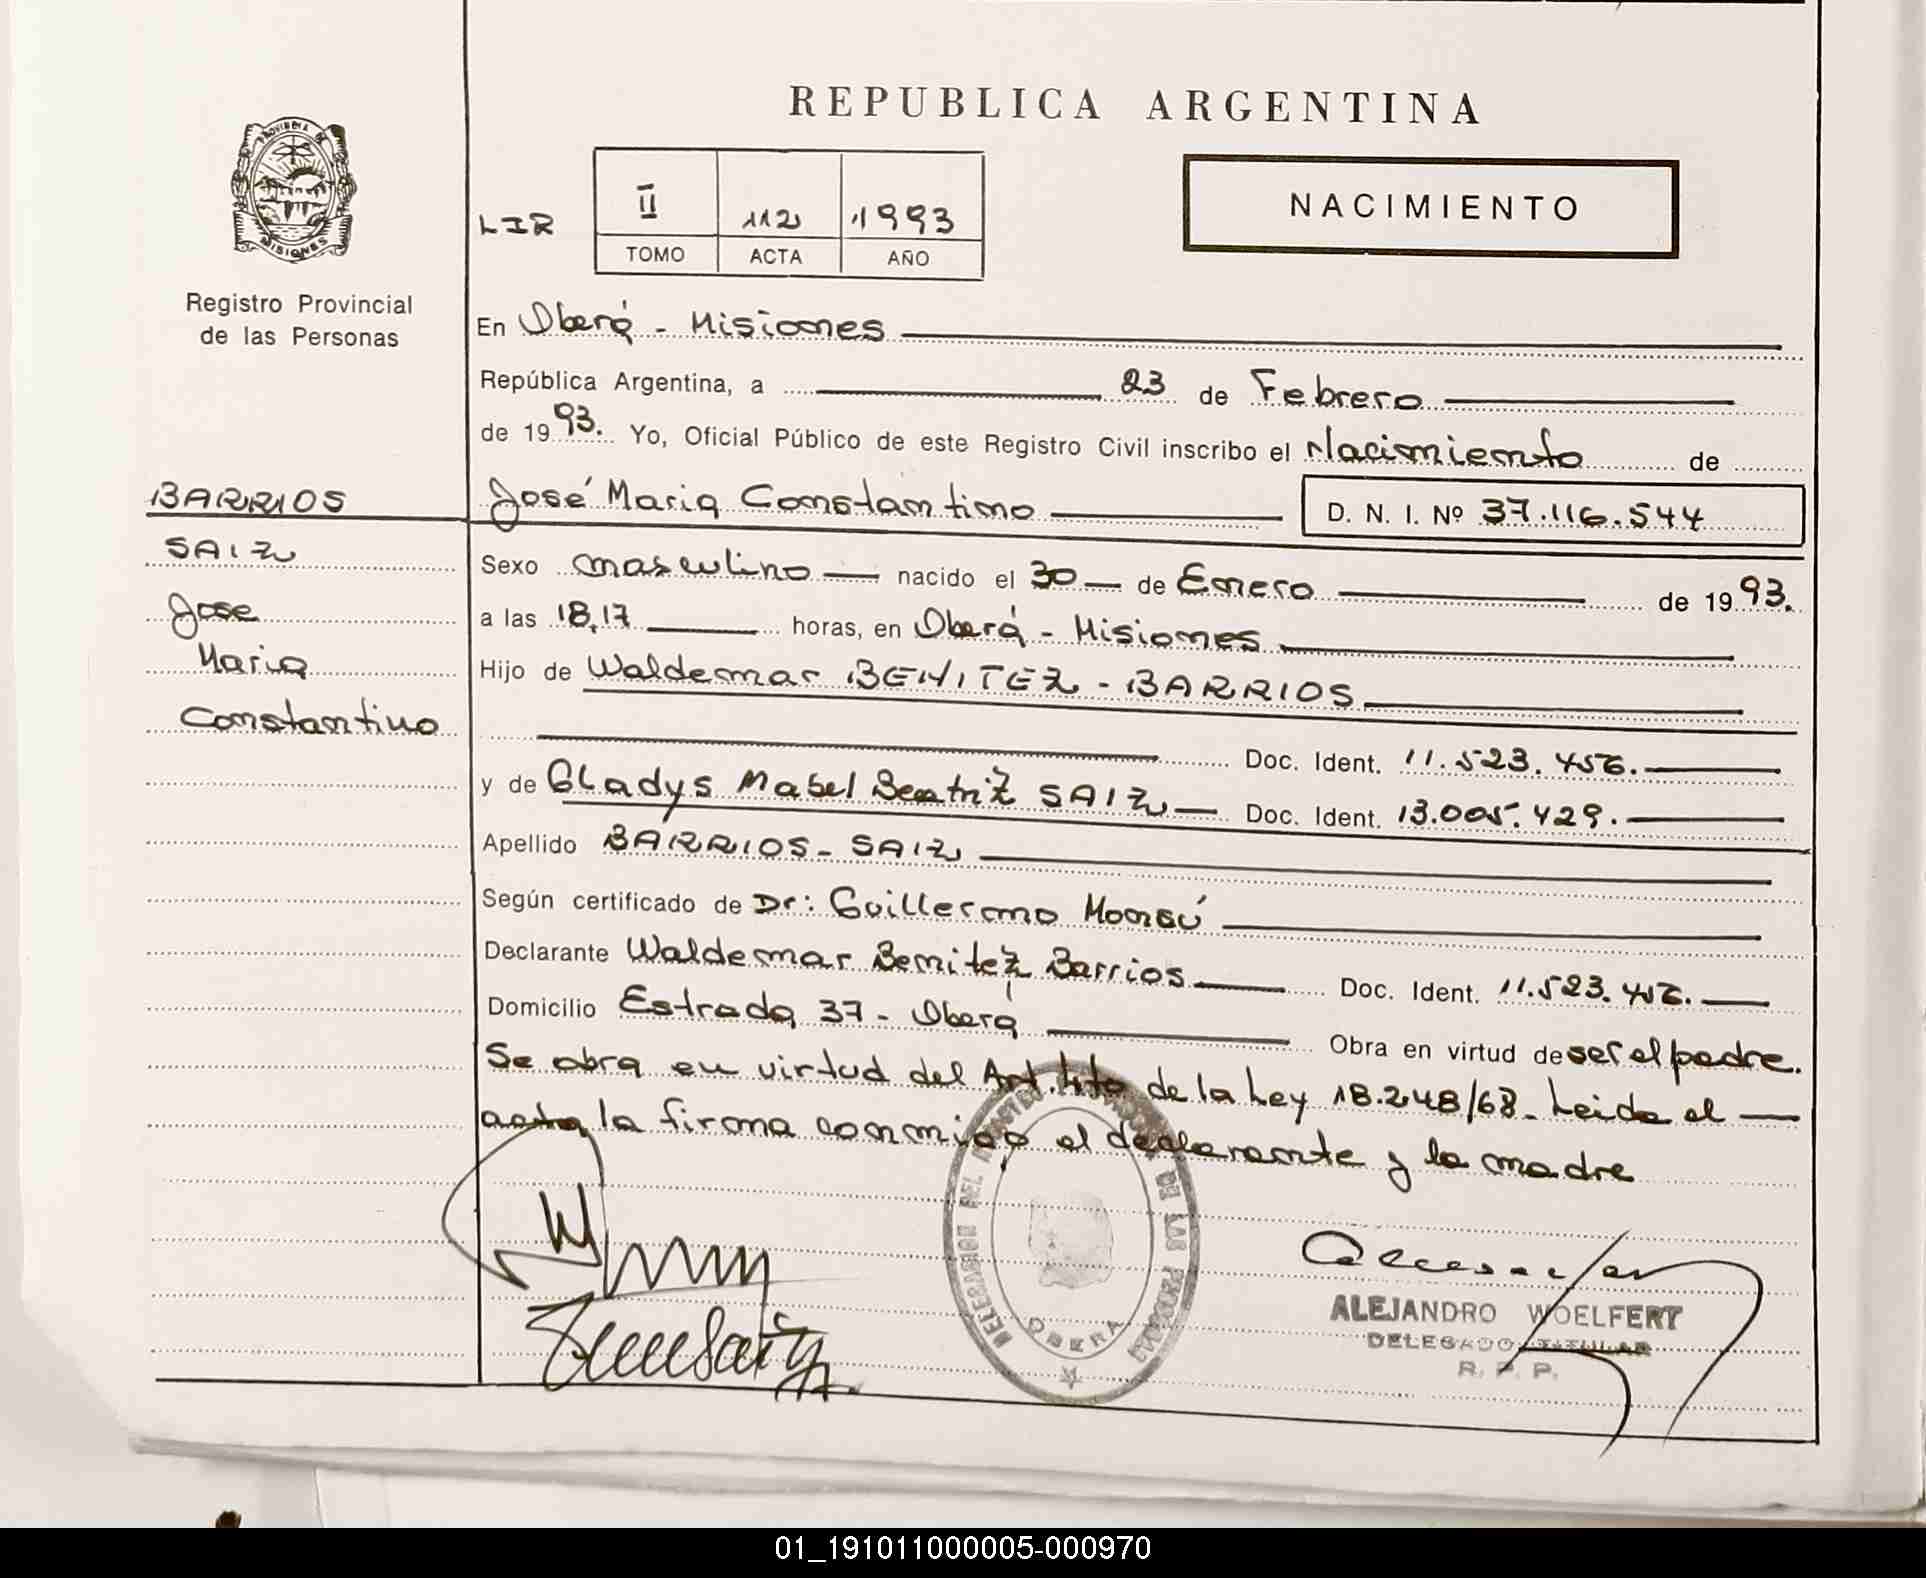 REPUBLICA ARGENTINA
PROVINCIA DE
MISIONES
Registro Provincial
de las Personas
NACIMIENTO
LIR
II 112 1993
TOMO ACTA AÑO
En Oberá - Misiones
República Argentina, a 23 de Febrero
de 1993. Yo, Oficial Público de este Registro Civil inscribo el Nacimiento de
BARRIOS
José Maria Constantino D. N. I. Nº 37.116.544
SAIZ
Sexo masculino nacido el 30 de Enero de 1993.
Jose
a las 18,17 horas, en Oberá - Misiones
Maria
Hijo de Waldemar BENITEZ - BARRIOS
Constantino
Doc. Ident. 11.523.456.
y de Gladys Mabel Beatriz SAIZ Doc. Ident. 13.005.429.
Apellido BARRIOS - SAIZ
Según certificado de Dr: Guillermo
Declarante Waldemar Benitez Barrios Doc. Ident. 11.523.456.
Domicilio Estrada 37 - Oberá Obra en virtud de ser el padre.
Se obra en virtud del Art. 4to de la Ley 18.248/68. Leida el
acta la firma conmigo el declarante y la madre
DELEGACION DEL REGISTRO PROVINCIAL DE LAS PERSONAS
OBERA
ALEJANDRO WOELFERT
DELEGADO TITULAR
R. P. P.
01_191011000005-000970